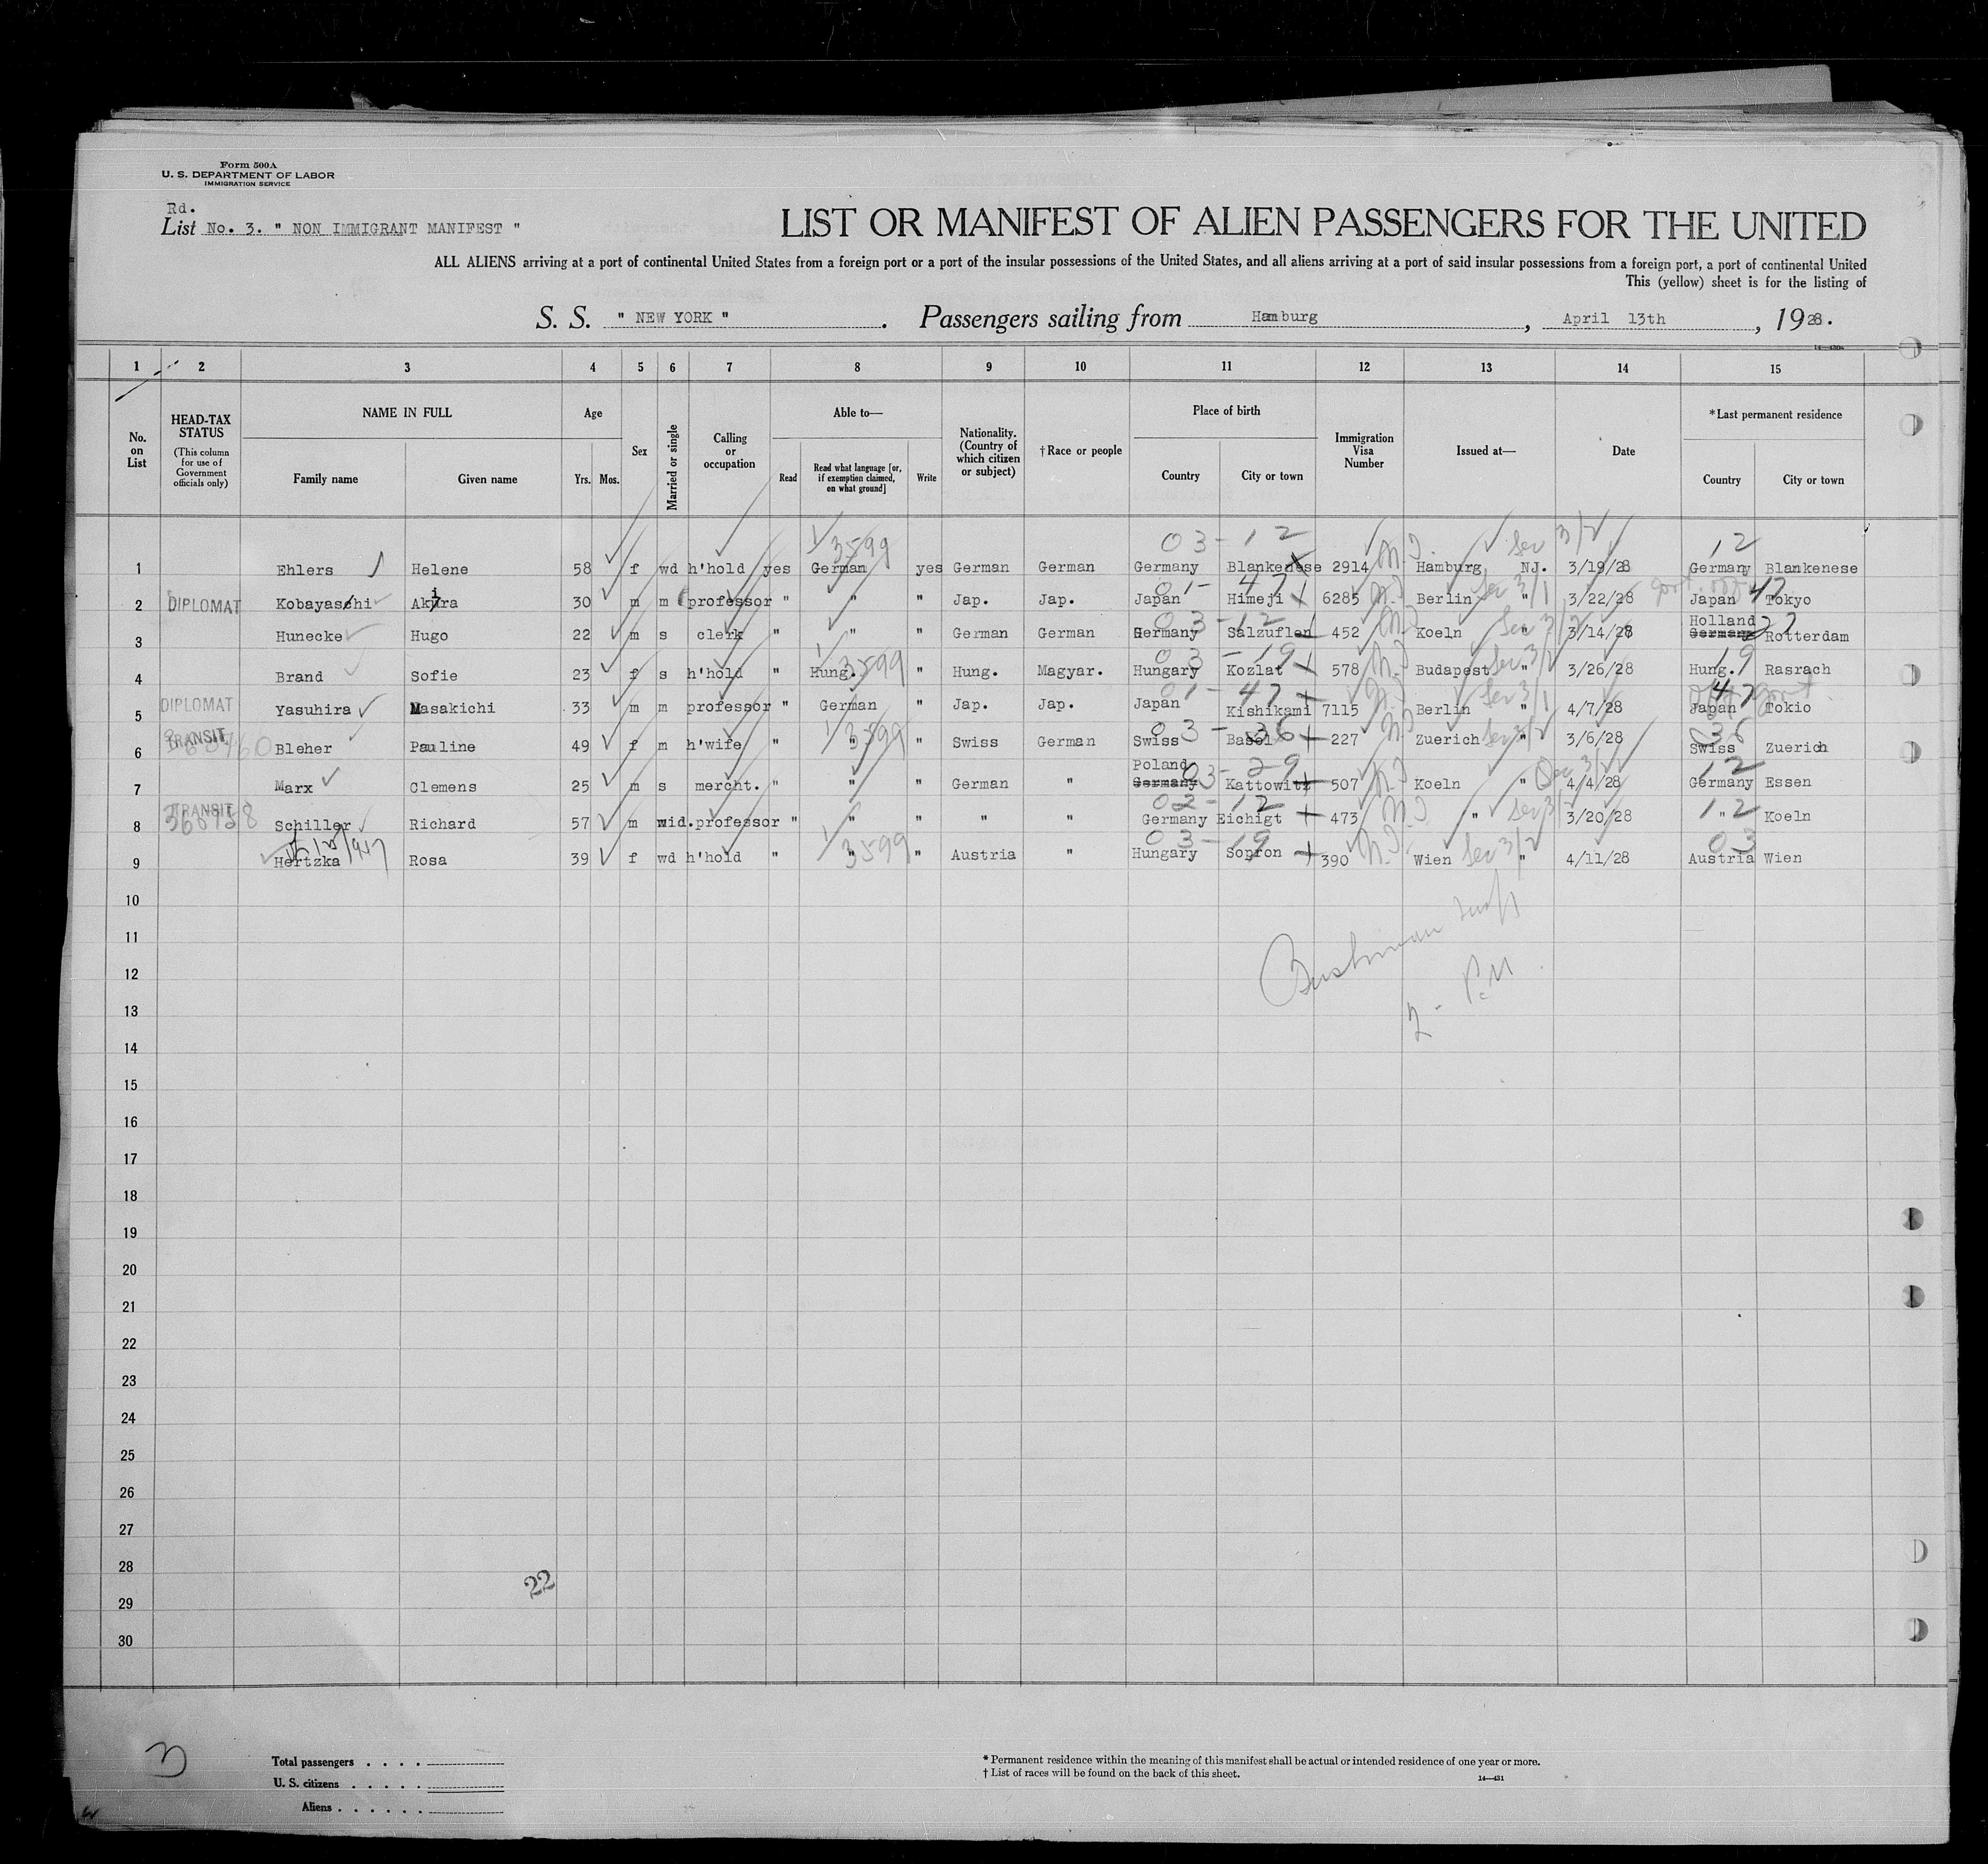 Form 500A
U. S. DEPARTMENT OF LABOR
IMMIGRATION SERVICE
Rd.
List No. 3. " NON IMMIGRANT MANIFEST "
LIST OR MANIFEST OF ALIEN PASSENGERS FOR THE UNITED
ALL ALIENS arriving at a port of continental United States from a foreign port or a port of the insular possessions of the United States, and all aliens arriving at a port of said insular possessions from a foreign port, a port of continental United
This (yellow) sheet is for the listing of
S. S. " NEW YORK " . Passengers sailing from Hamburg , April 13th , 1928.
1 2 3 4 5 6 7 8 9 10 11 12 13 14 15
No. on List
HEAD-TAX STATUS (This column for use of Government officials only)
NAME IN FULL Family name Given name
Age Yrs. Mos.
Sex
Married or single
Calling or occupation
Able to— Read Read what language [or, if exemption claimed, on what ground] Write
Nationality. (Country of which citizen or subject)
†Race or people
Place of birth Country City or town
Immigration Visa Number
Issued at—
Date
*Last permanent residence Country City or town
03-12 3599 Sec 3/2 12
1 Ehlers Helene 58 f wd h'hold yes German yes German German Germany Blankenese 2914 Hamburg NJ. 3/19/28 Germany Blankenese
01-47 Sec 3/1 47
2 DIPLOMAT Kobayaschi Akira 30 m m professor " " " Jap. Jap. Japan Himeji 6285 Berlin " 3/22/28 Japan Tokyo
03-12 Sec 3/2 27
3 Hunecke Hugo 22 m s clerk " " " German German Germany Salzuflen 452 Koeln " 3/14/28 Holland Germany Rotterdam
03-19 3599 Sec 3/2 19
4 Brand Sofie 23 f s h'hold " Hung. " Hung. Magyar. Hungary Kozlat 578 Budapest " 3/26/28 Hung. Rasrach
01-47 Sec 3/1 47
5 DIPLOMAT Yasuhira Masakichi 33 m m professor " German " Jap. Jap. Japan Kishikami 7115 Berlin " 4/7/28 Japan Tokio
03-36 3599 Sec 3/2 36
6 TRANSIT Bleher Pauline 49 f m h'wife " " " Swiss German Swiss Basel 227 Zuerich " 3/6/28 Swiss Zuerich
03-29 12
7 Marx Clemens 25 m s mercht. " " " German " Poland Germany Kattowitz 507 Koeln " 4/4/28 Germany Essen
02-12 12
8 TRANSIT Schiller Richard 57 m wid. professor " " " " " Germany Eichigt 473 " 3/20/28 " Koeln
03-19 3599 Sec 3/2 03
9 Hertzka Rosa 39 f wd h'hold " " " Austria " Hungary Sopron 390 Wien " 4/11/28 Austria Wien
10
11
12
13
14
15
16
17
18
19
20
21
22
23
24
25
26
27
28
22
29
30
Total passengers . . . .
U. S. citizens . . . . .
Aliens . . . . . .
* Permanent residence within the meaning of this manifest shall be actual or intended residence of one year or more.
† List of races will be found on the back of this sheet.
14—431